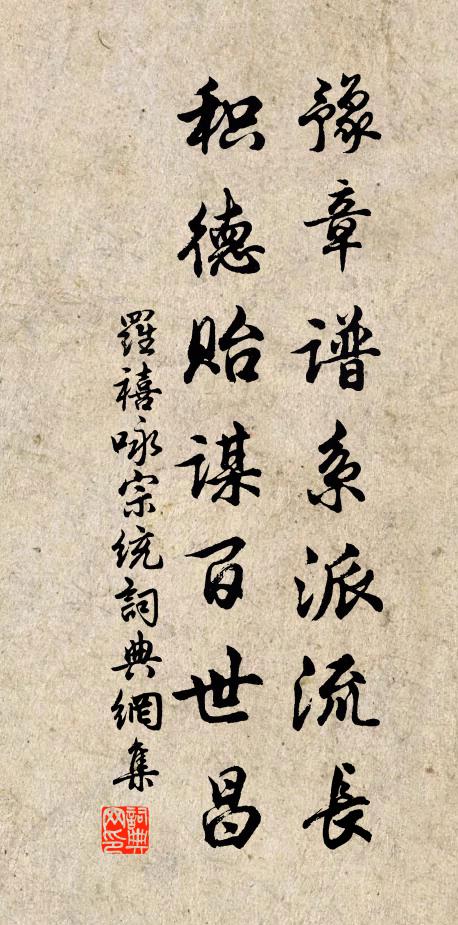 豫章谱系派流長
积德貽謀百世昌
羅禧咏宗統詞典網集
詞典网印